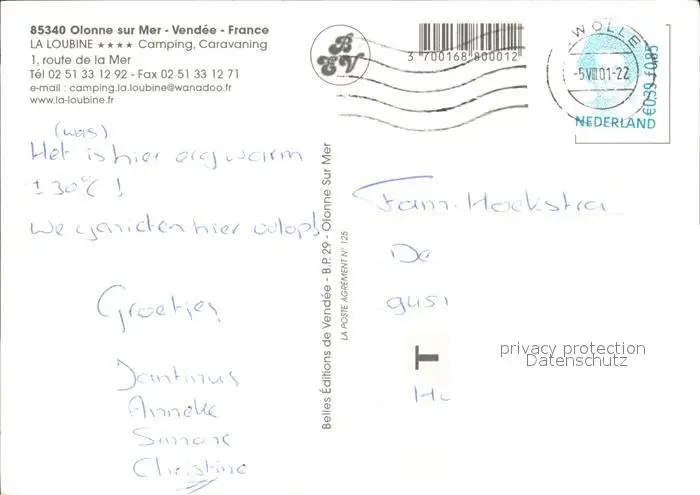 85340 Olonne sur Mer - Vendée - France
LA LOUBINE ★★★★ Camping, Caravaning
1, route de la Mer
Tél 02 51 33 12 92 - Fax 02 51 33 12 71
e-mail : camping.la.loubine@wanadoo.fr
www.la-loubine.fr
BEV
3 700168 800012
WOLLE
-5 VIII 01-22
€0,39 f0,85
NEDERLAND
(was)
Het is hier erg warm
± 30°C !
We genieten hier volop!
Groetjes
Jantinus
Anneke
Simone
Christine
Belles Éditions de Vendée - B.P. 29 - Olonne Sur Mer
LA POSTE AGRÉMENT N° 125
Fam. Hoekstra
De
T
privacy protection
Datenschutz